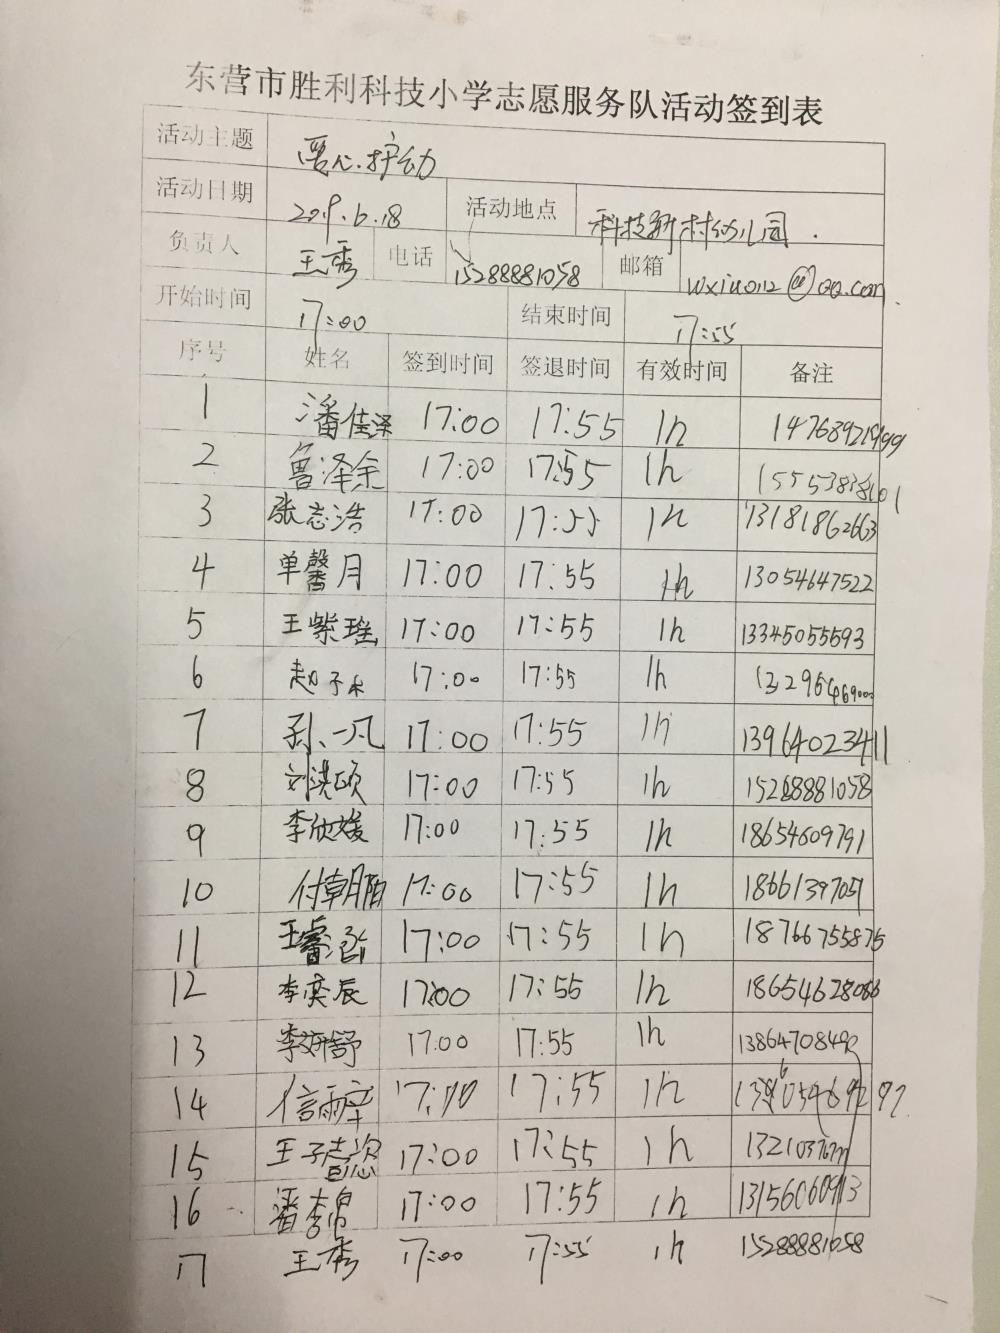 东营市胜利科技小学志愿服务队活动签到表
活动主题 爱心护幼
活动日期 2019.6.18 活动地点 科技新村幼儿园.
负责人 王秀 电话 15288881058 邮箱 wxiu0112@qq.com.
开始时间 17:00 结束时间 17:55
序号 姓名 签到时间 签退时间 有效时间 备注
1 潘佳泽 17:00 17:55 1h
2 鲁泽余 17:00 17:55 1h 15553838101
3 张志浩 17:00 17:55 1h 13181862663
4 单馨月 17:00 17:55 1h 13054647522
5 王紫瑶 17:00 17:55 1h 13345055593
6 赵子木 17:00 17:55 1h
7 孙一凡 17:00 17:55 1h 13964023411
8 刘洪硕 17:00 17:55 1h 15288881058
9 李欣媛 17:00 17:55 1h 18654609791
10 付朝阳 17:00 17:55 1h 18661397051
11 王睿涵 17:00 17:55 1h 18766755875
12 李奕辰 17:00 17:55 1h 18654628086
13 李妍舒 17:00 17:55 1h 13864708490
14 信雨 17:00 17:55 1h
15 王子 17:00 17:55 1h
16 潘李帛 17:00 17:55 1h 13156060913
17 王秀 17:00 17:55 1h 15288881058